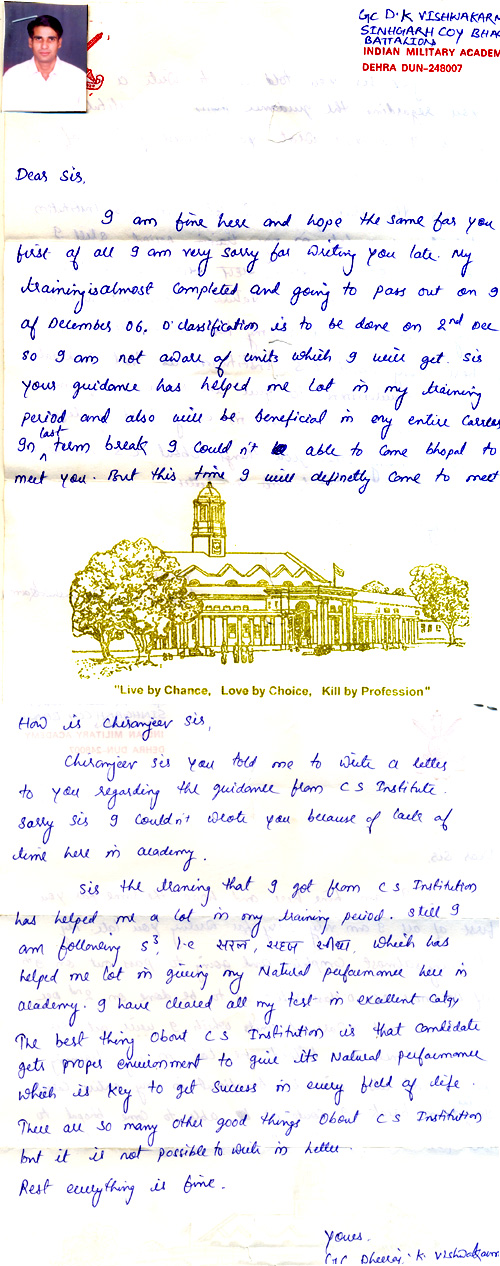 GC D.K VISHWAKAR
SINHGARH COY BHA
BATTALION
INDIAN MILITARY ACADEM
DEHRA DUN-248007
Dear Sis,
I am fine here and hope the same for you
first of all I am very sorry for writing you late. My
training is almost completed and going to pass out on 9
of December 06. O'classification is to be done on 2nd Dec
so I am not aware of units which I will get. Sis
your guidance has helped me lot in my training
period and also will be beneficial in my entire career
In last term break I could n't able to come bhopal to
meet you. But this time I will definetly come to meet
"Live by Chance, Love by Choice, Kill by Profession"
How is Chiranjeev Sis,
Chiranjeev sis you told me to write a letter
to you regarding the guidance from C S Institute.
Sorry Sis I couldn't wrote you because of lack of
time here in academy.
Sis the traning that I got from C S Institution
has helped me a lot in my training period. still I
am following S3, i-e सरल, सहज सीधा, which has
helped me lot in giving my Natural performance here in
academy. I have cleared all my test in excellent catgy
The best thing about C S Institution is that candidate
gets proper environment to give its Natural performance
which is key to get success in every field of life.
There are so many other good things about C S Institution
but it is not possible to write in letter.
Rest everything is fine.
Yours.
GC Dheeraj. K. Vishwakarm